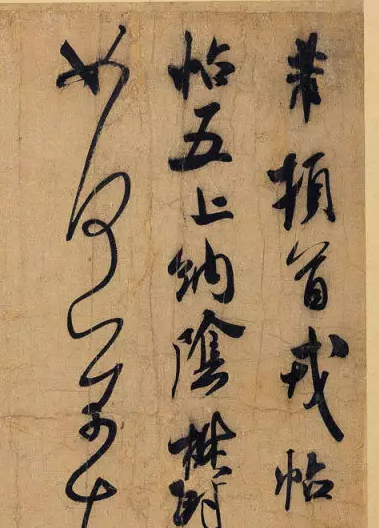 芾頓首戎帖
帖五上納陰鬱
如何芾